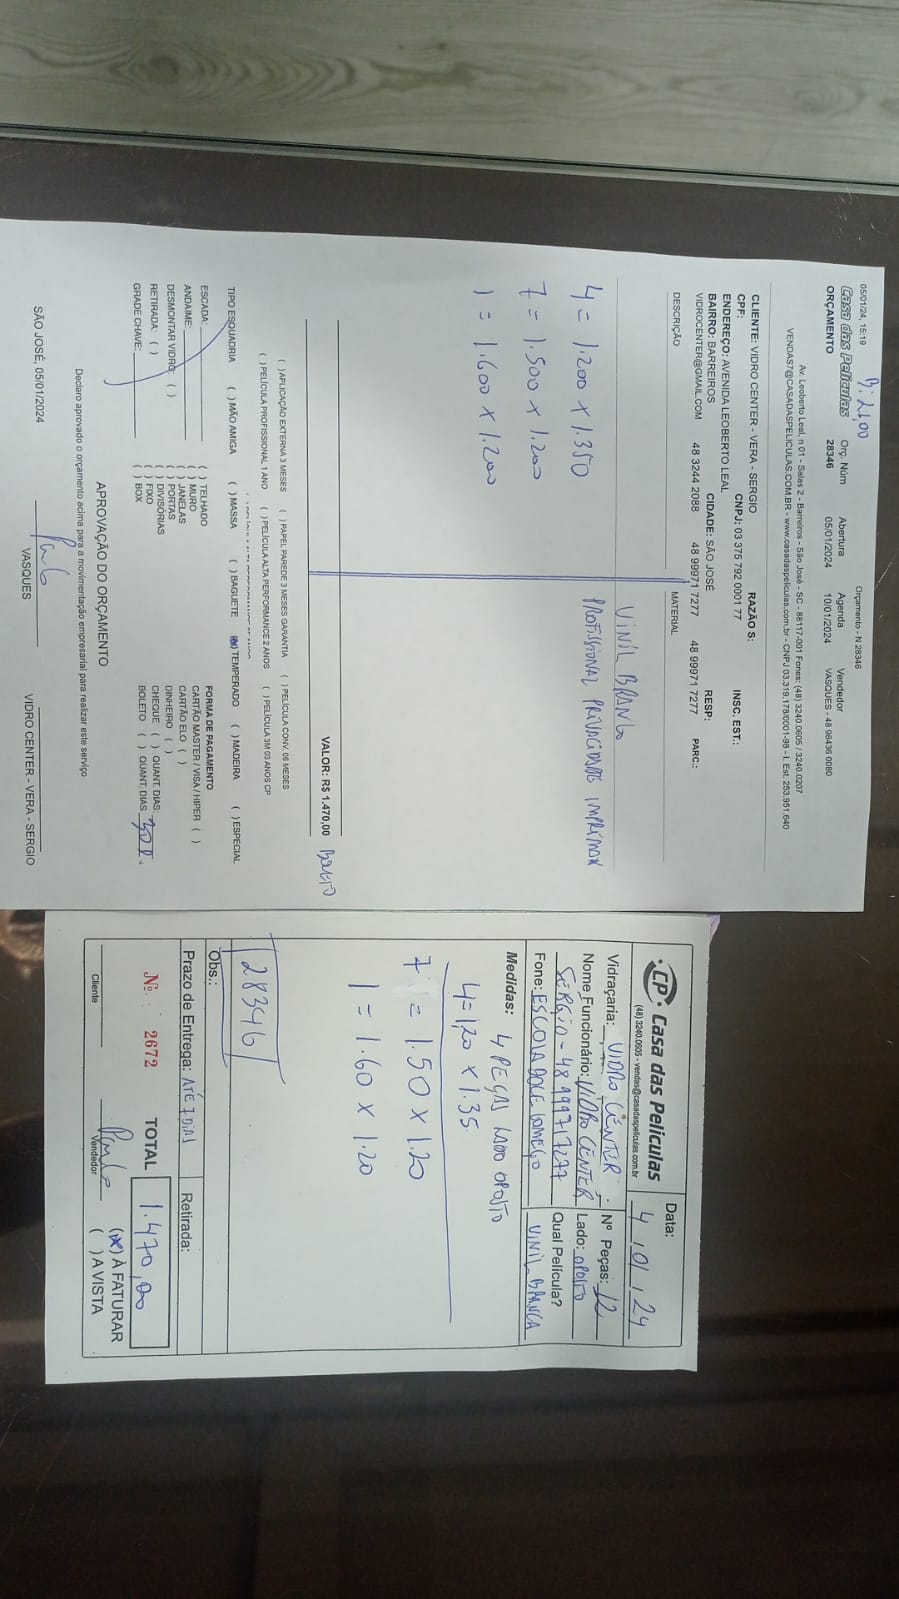 05/01/24, 15:19
Orçamento - N 28346
Casa das Películas
ORÇAMENTO
Orç. Núm
28346
Abertura
05/01/2024
Agenda
10/01/2024
Vendedor
VASQUES - 48 98436 0080
Av. Leoberto Leal, n 01 - Salas 2 - Barreiros - São José - SC - 88117-001 Fones: (48) 3240.0605 / 3240.0207
VENDAS7@CASADASPELICULAS.COM.BR - www.casadaspeliculas.com.br - CNPJ 03.319.178/0001-98 - I. Est. 253.951.640
CLIENTE: VIDRO CENTER - VERA - SERGIO RAZÃO S:
CPF: CNPJ: 03 375 792 0001 77 INSC. EST.:
ENDEREÇO: AVENIDA LEOBERTO LEAL
BAIRRO: BARREIROS CIDADE: SÃO JOSÉ RESP:
VIDROCENTER@GMAIL.COM 48 3244 2088 48 99971 7277 48 99971 7277 PARC.:
DESCRIÇÃO MATERIAL
VINIL BRANCO
4 = 1.200 x 1.350 PROFISSIONAL PRIVACIDADE IMPRIMAX
7 = 1.500 x 1.200
1 = 1.600 x 1.200
VALOR: R$ 1.470,00 BOLETO
( ) APLICAÇÃO EXTERNA 3 MESES ( ) PAPEL PAREDE 3 MESES GARANTIA ( ) PELÍCULA CONV. 06 MESES
( ) PELÍCULA PROFISSIONAL 1 ANO ( ) PELÍCULA ALTA PERFORMANCE 2 ANOS ( ) PELÍCULA 3M 03 ANOS CP
TIPO ESQUADRIA ( ) MÃO AMIGA ( ) MASSA ( ) BAGUETE (X) TEMPERADO ( ) MADEIRA ( ) ESPECIAL
ESCADA: ( ) TELHADO FORMA DE PAGAMENTO
ANDAIME: ( ) MURO CARTÃO MASTER / VISA / HIPER ( )
( ) JANELAS CARTÃO ELO ( )
DESMONTAR VIDRO: ( ) ( ) PORTAS DINHEIRO ( )
RETIRADA: ( ) ( ) DIVISÓRIAS CHEQUE ( ) QUANT. DIAS:
GRADE CHAVE: ( ) FIXO BOLETO ( ) QUANT. DIAS: 30
( ) BOX
APROVAÇÃO DO ORÇAMENTO
Declaro aprovado o orçamento acima para a movimentação empresarial para realizar este serviço
SÃO JOSÉ, 05/01/2024
VASQUES
VIDRO CENTER - VERA - SERGIO
CP Casa das Películas
(48) 3240.0605 - vendas@casadaspeliculas.com.br
Data:
4, 01, 24
Vidraçaria: VIDRO CENTER Nº Peças: 12
Nome Funcionário: VIDRO CENTER Lado: OPOSTO
SERGIO - 48 999717277 Qual Película?
Fone: ESCOLA DOCE COMEÇO VINIL BRANCA
Medidas: 4 PEÇAS LADO OPOSTO
4 = 1,20 x 1.35
7 = 1.50 x 1.20
1 = 1.60 x 1.20
28346
Obs.:
Prazo de Entrega: ATÉ 7 DIAS Retirada:
Nº 2672 TOTAL 1.470,00
Cliente
Vendedor
(X) À FATURAR
( ) A VISTA